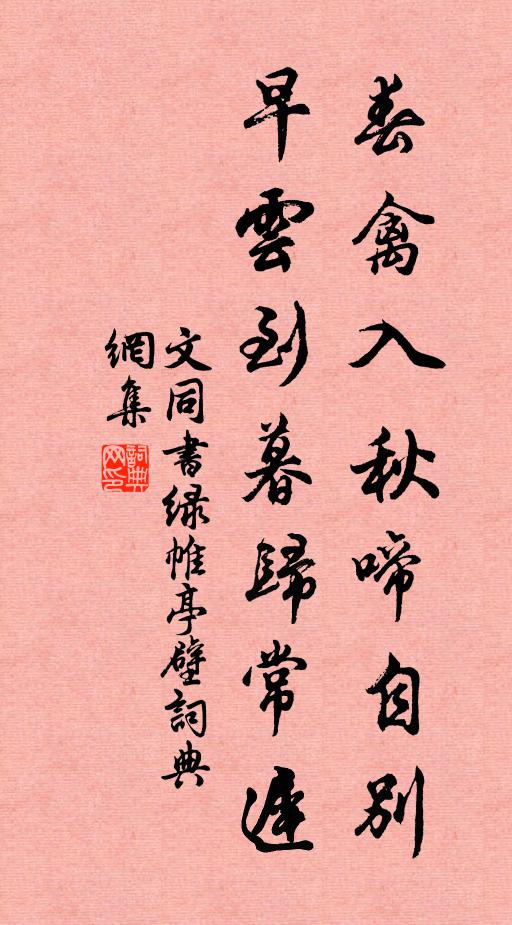 春禽入秋啼自别
早雲到暮歸常遲
文同書緑帷亭壁詞典
網集
詞典
网印